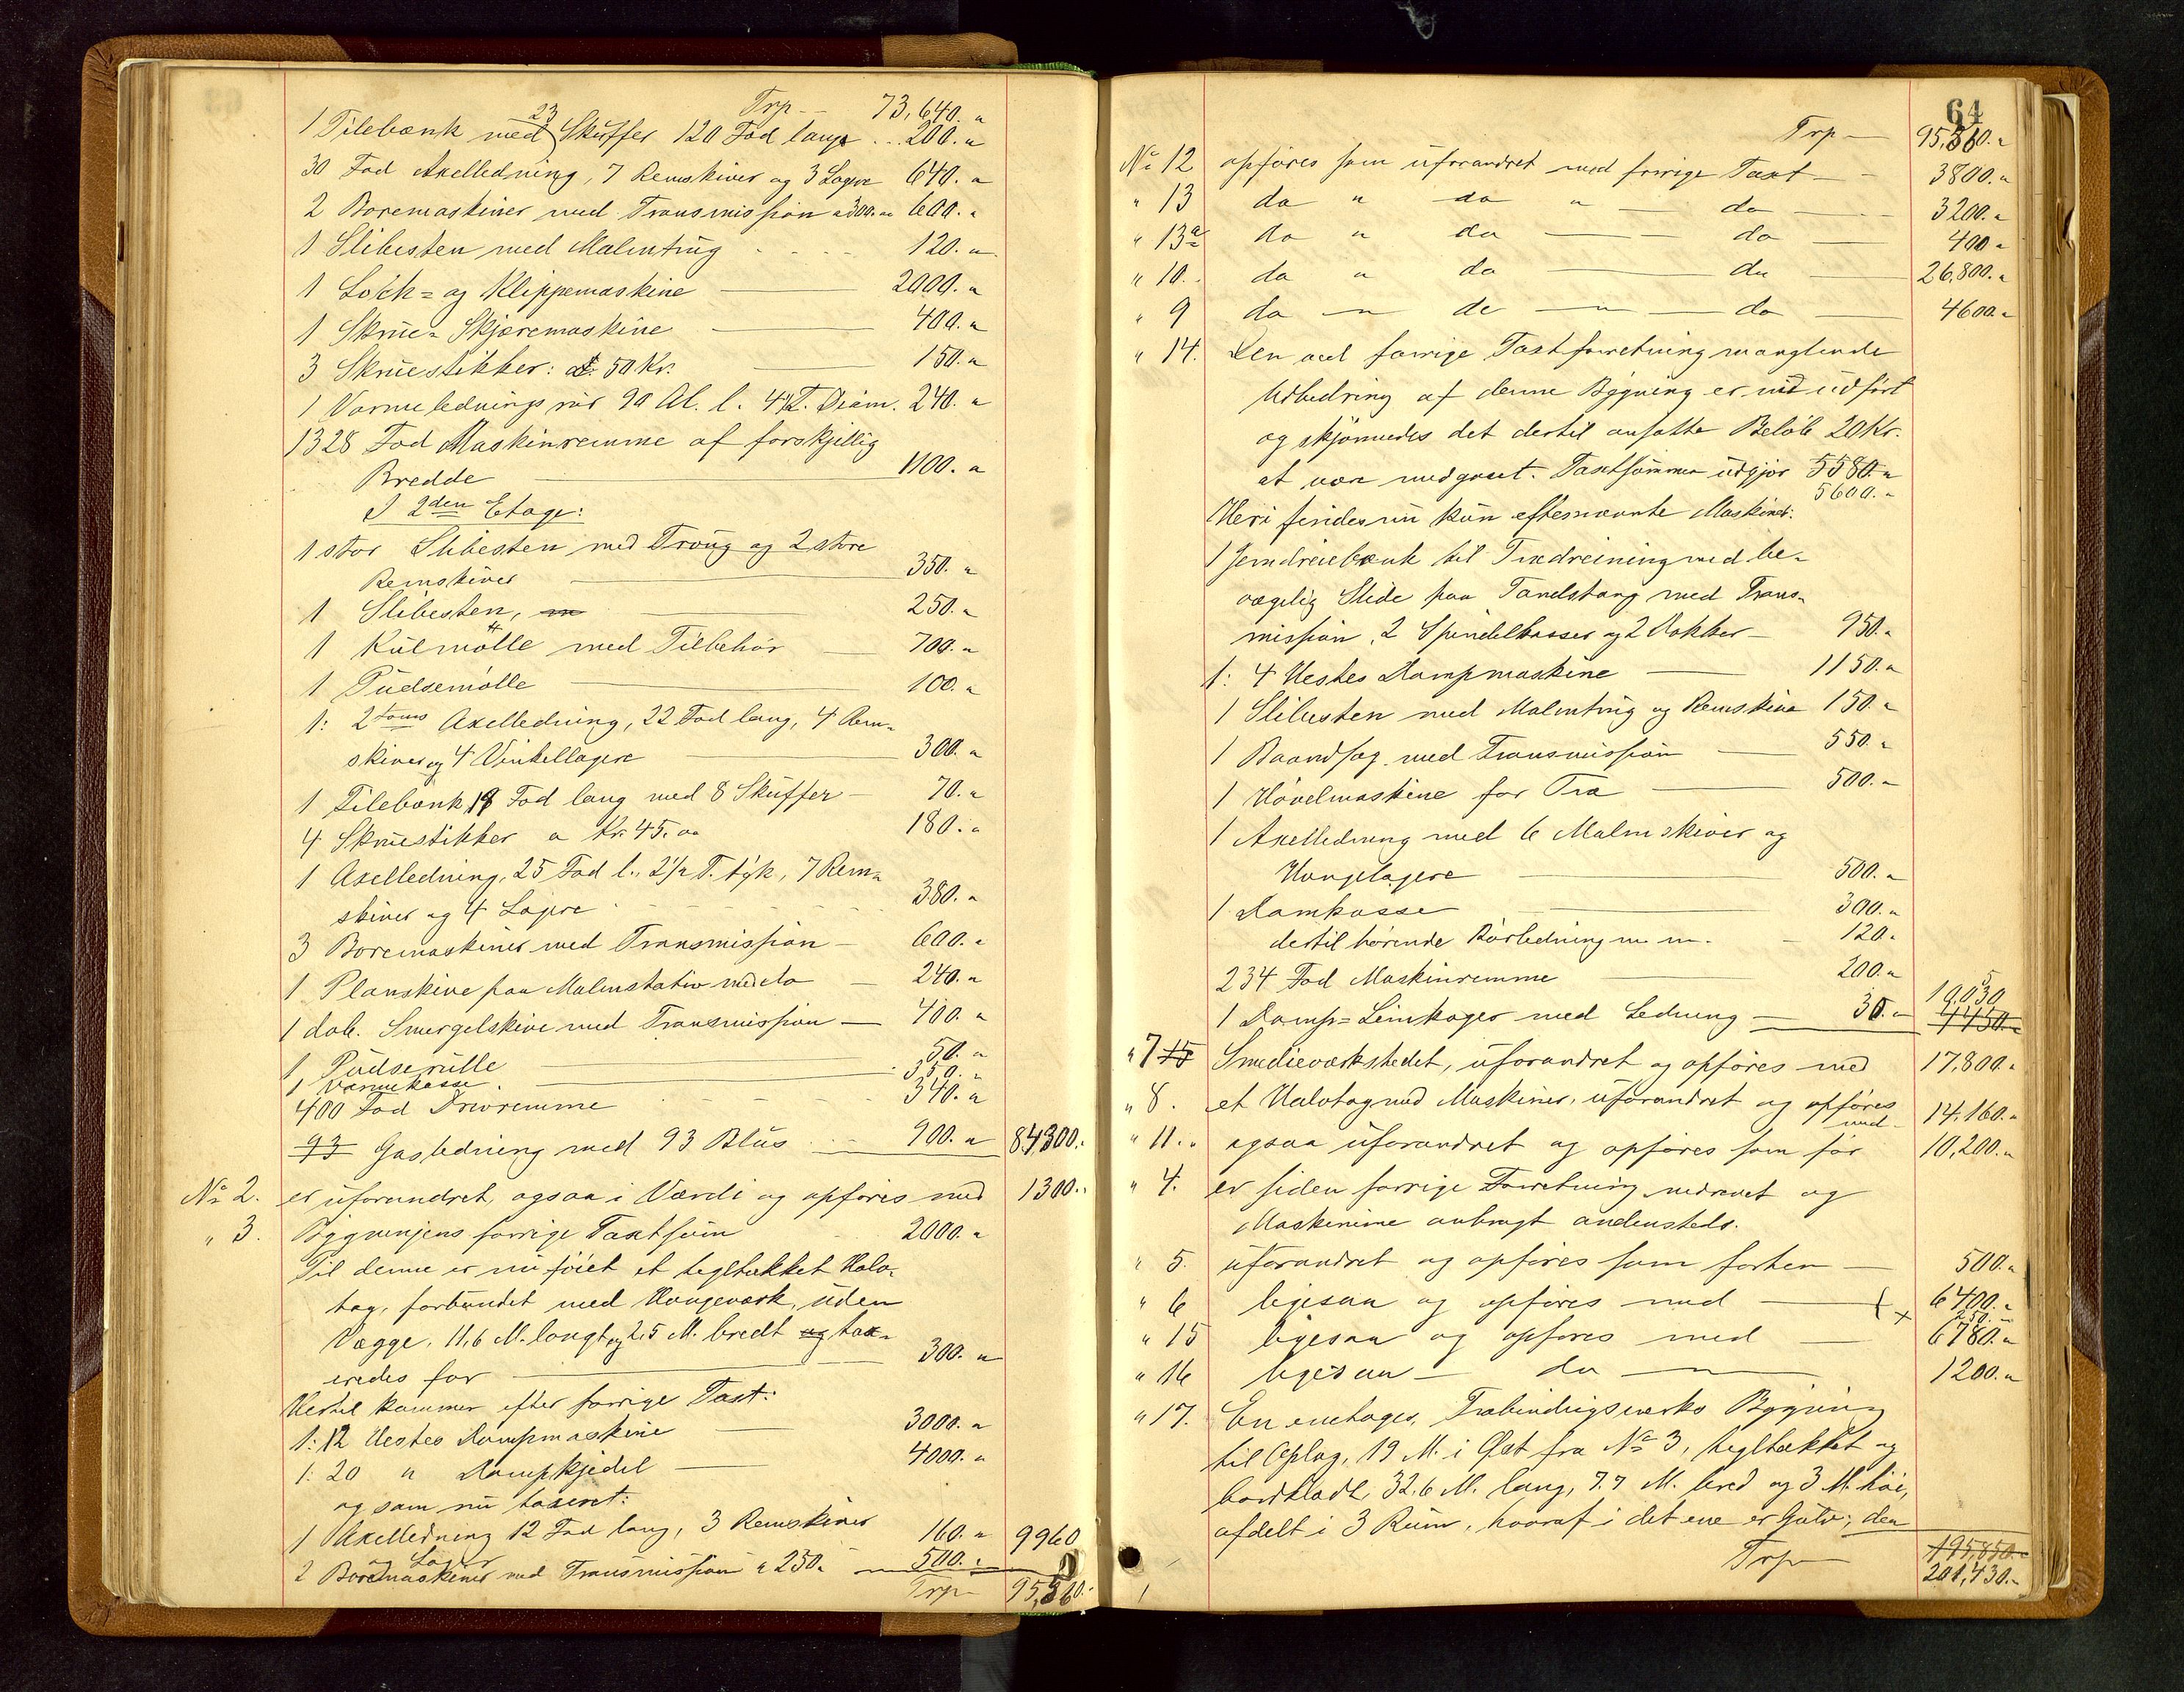 Trp — 73,640. "
1 Filebænk med 23 Skuffer 120 Fod lang ... 200. "
30 Fod Axelledning, 7 Remskiver og 3 Lagere 640. "
2 Boremaskiner med Transmission a 300. " 600. "
1 Slibesten med Malmtrug - - - - 120. "
1 Lock- og Klippemaskine — 2000. "
1 Skrue- Skjæremaskine — 400. "
3 Skruestikker: a 50 Kr. — 150. "
1 Varmeledningsrør 90 Al. l. 4" T. Diam. 240. "
1328 Fod Maskinremme af forskjellig
Bredde — 1100. "
I 2den Etage:
1 stor Slibesten med Traug og 2 store
Remskiver — 350. "
1 Slibesten, — 250. "
1 Kulmølle med Tilbehør — 700. "
1 Pudsemølle — 100. "
1: 2 toms Axelledning, 22 Fod lang, 4 Rem-
skiver og 4 Vinkellagere — 300. "
1 Filebænk 18 Fod lang med 8 Skuffer — 70. "
4 Skruestikker a Kr. 45. oo 180. "
1 Axelledning, 25 Fod l., 2 1/2 T. tyk, 7 Rem-
skiver og 4 Lagere - - - - 380. "
3 Boremaskiner med Transmission — 600. "
1 Planskive paa Malmstativ med do — 240. "
1 dob. Smergelskive med Transmission — 400. "
1 Pudserulle — 50. "
1 Varmekasse . — 350. "
400 Fod Drivremme - - - - 340. "
93 Gasledning med 93 Blus — 900. " 84300. "
No 2. er uforandret, ogsaa i Værdi og opføres med 1300. "
" 3. Bygningens forrige Taxtsum 2000. "
Til denne er nu føiet et tegltækket Halv-
tag, forbundet med Hovgeværk, uden
Vægge, 11,6 M. langt og 2,5 M. bredt og tax-
eredes for — 300. "
Hertil kommer efter forrige Taxt:
1: 12 Hestes Dampmaskine — 3000. "
1: 20 " Dampkjedel — 4000. "
og som nu taxeret:
1 Axelledning 12 Fod lang, 3 Remskiver
og Lager 160. " 9960
2 Boremaskiner med Transmission a 250. " 500. "
Trp — 95,560. "
64
Trp — 95,560. "
No 12 opføres som uforandret med forrige Taxt — 3800. "
" 13 do " do " — do — 3200. "
" 13a do " do — do — 400 "
" 10. do " do — do — 26,800. "
" 9 do — " do — " — do — 4600. "
" 14. Den ved forrige Taxtforretning manglende
Udbedring af denne Bygning er nu udført
og skjønnedes det dertil ansatte Beløb 20 Kr.
at være medgaaet. Taxtsummen udgjør 5580. "
5600. "
Heri findes nu kun efternævnte Maskiner:
1 Jerndreiebænk til Trædreining med be-
vægelig Slide paa Tandstang med Trans-
mission, 2 Spindelkasser og 2 Dokker — 950. "
1: 4 Hestes Dampmaskine — 1150. "
1 Slibesten med Malmtrug og Remskive 150. "
1 Baandsag med Transmission — 550. "
1 Høvelmaskine for Træ — 500. "
1 Axelledning med 6 Malmskiver og
Hængelagere — 500. "
1 Damkasse — 300. "
dertil hørende Rørledning m. m. — 120. "
234 Fod Maskinremme — 200. "
1 Damp-Limkoger med Ledning — 30. " 10,030
4450. "
" 7 15 Smedieværkstedet, uforandret og opføres med 17,800. "
" 8. et Halvtag med Maskiner, uforandret og opføres
med 14,160. "
" 11. " ogsaa uforandret og opføres som før 10,200. "
" 4. er siden forrige Forretning nedrevet og
Maskinerne anbragt andensteds.
" 5. uforandret og opføres som forhen — 500. "
" 6 ligesaa og opføres med — 6400. "
350. "
" 15 ligesaa og opføres med — 6780. "
" 16 ligesaa — do — 1200. "
" 17. En enetages, Træbindingsværks Bygning
til Oplag, 19 M. i Øst fra No 3, tegltækket og
bordklædt, 32.6 M. lang, 7.7 M. bred og 3 M. høi,
afdelt i 3 Rum, hvoraf i det ene er Gulv; den
Trp — 195,850. "
201,430. "